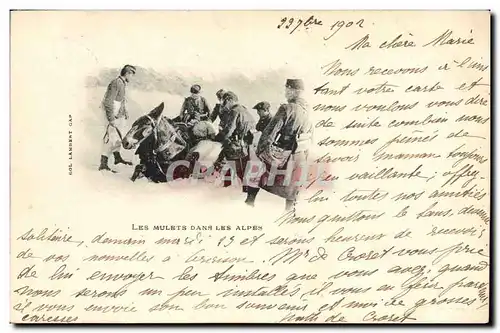 22 7bre 1902
Ma chère Marie
Nous recevons à l'ins
tant votre carte et
nous voulons vous dire
de suite combien nous
sommes peinés de
savoir maman toujours
vaillante,
lui toutes nos amitiés
Nous quittons le
solitaire, demain mardi 23 et serons heureux de recevoir
de vos nouvelles à Mr de Croset vous prie
de lui envoyer les timbres que vous avez, quand
nous serons un peu installés il vous en fera passer
Il vous envoie son bon souvenir et moi de grosses
caresses de Croset
COL. LAMBERT GAP
CPRPHOTO
LES MULETS DANS LES ALPES